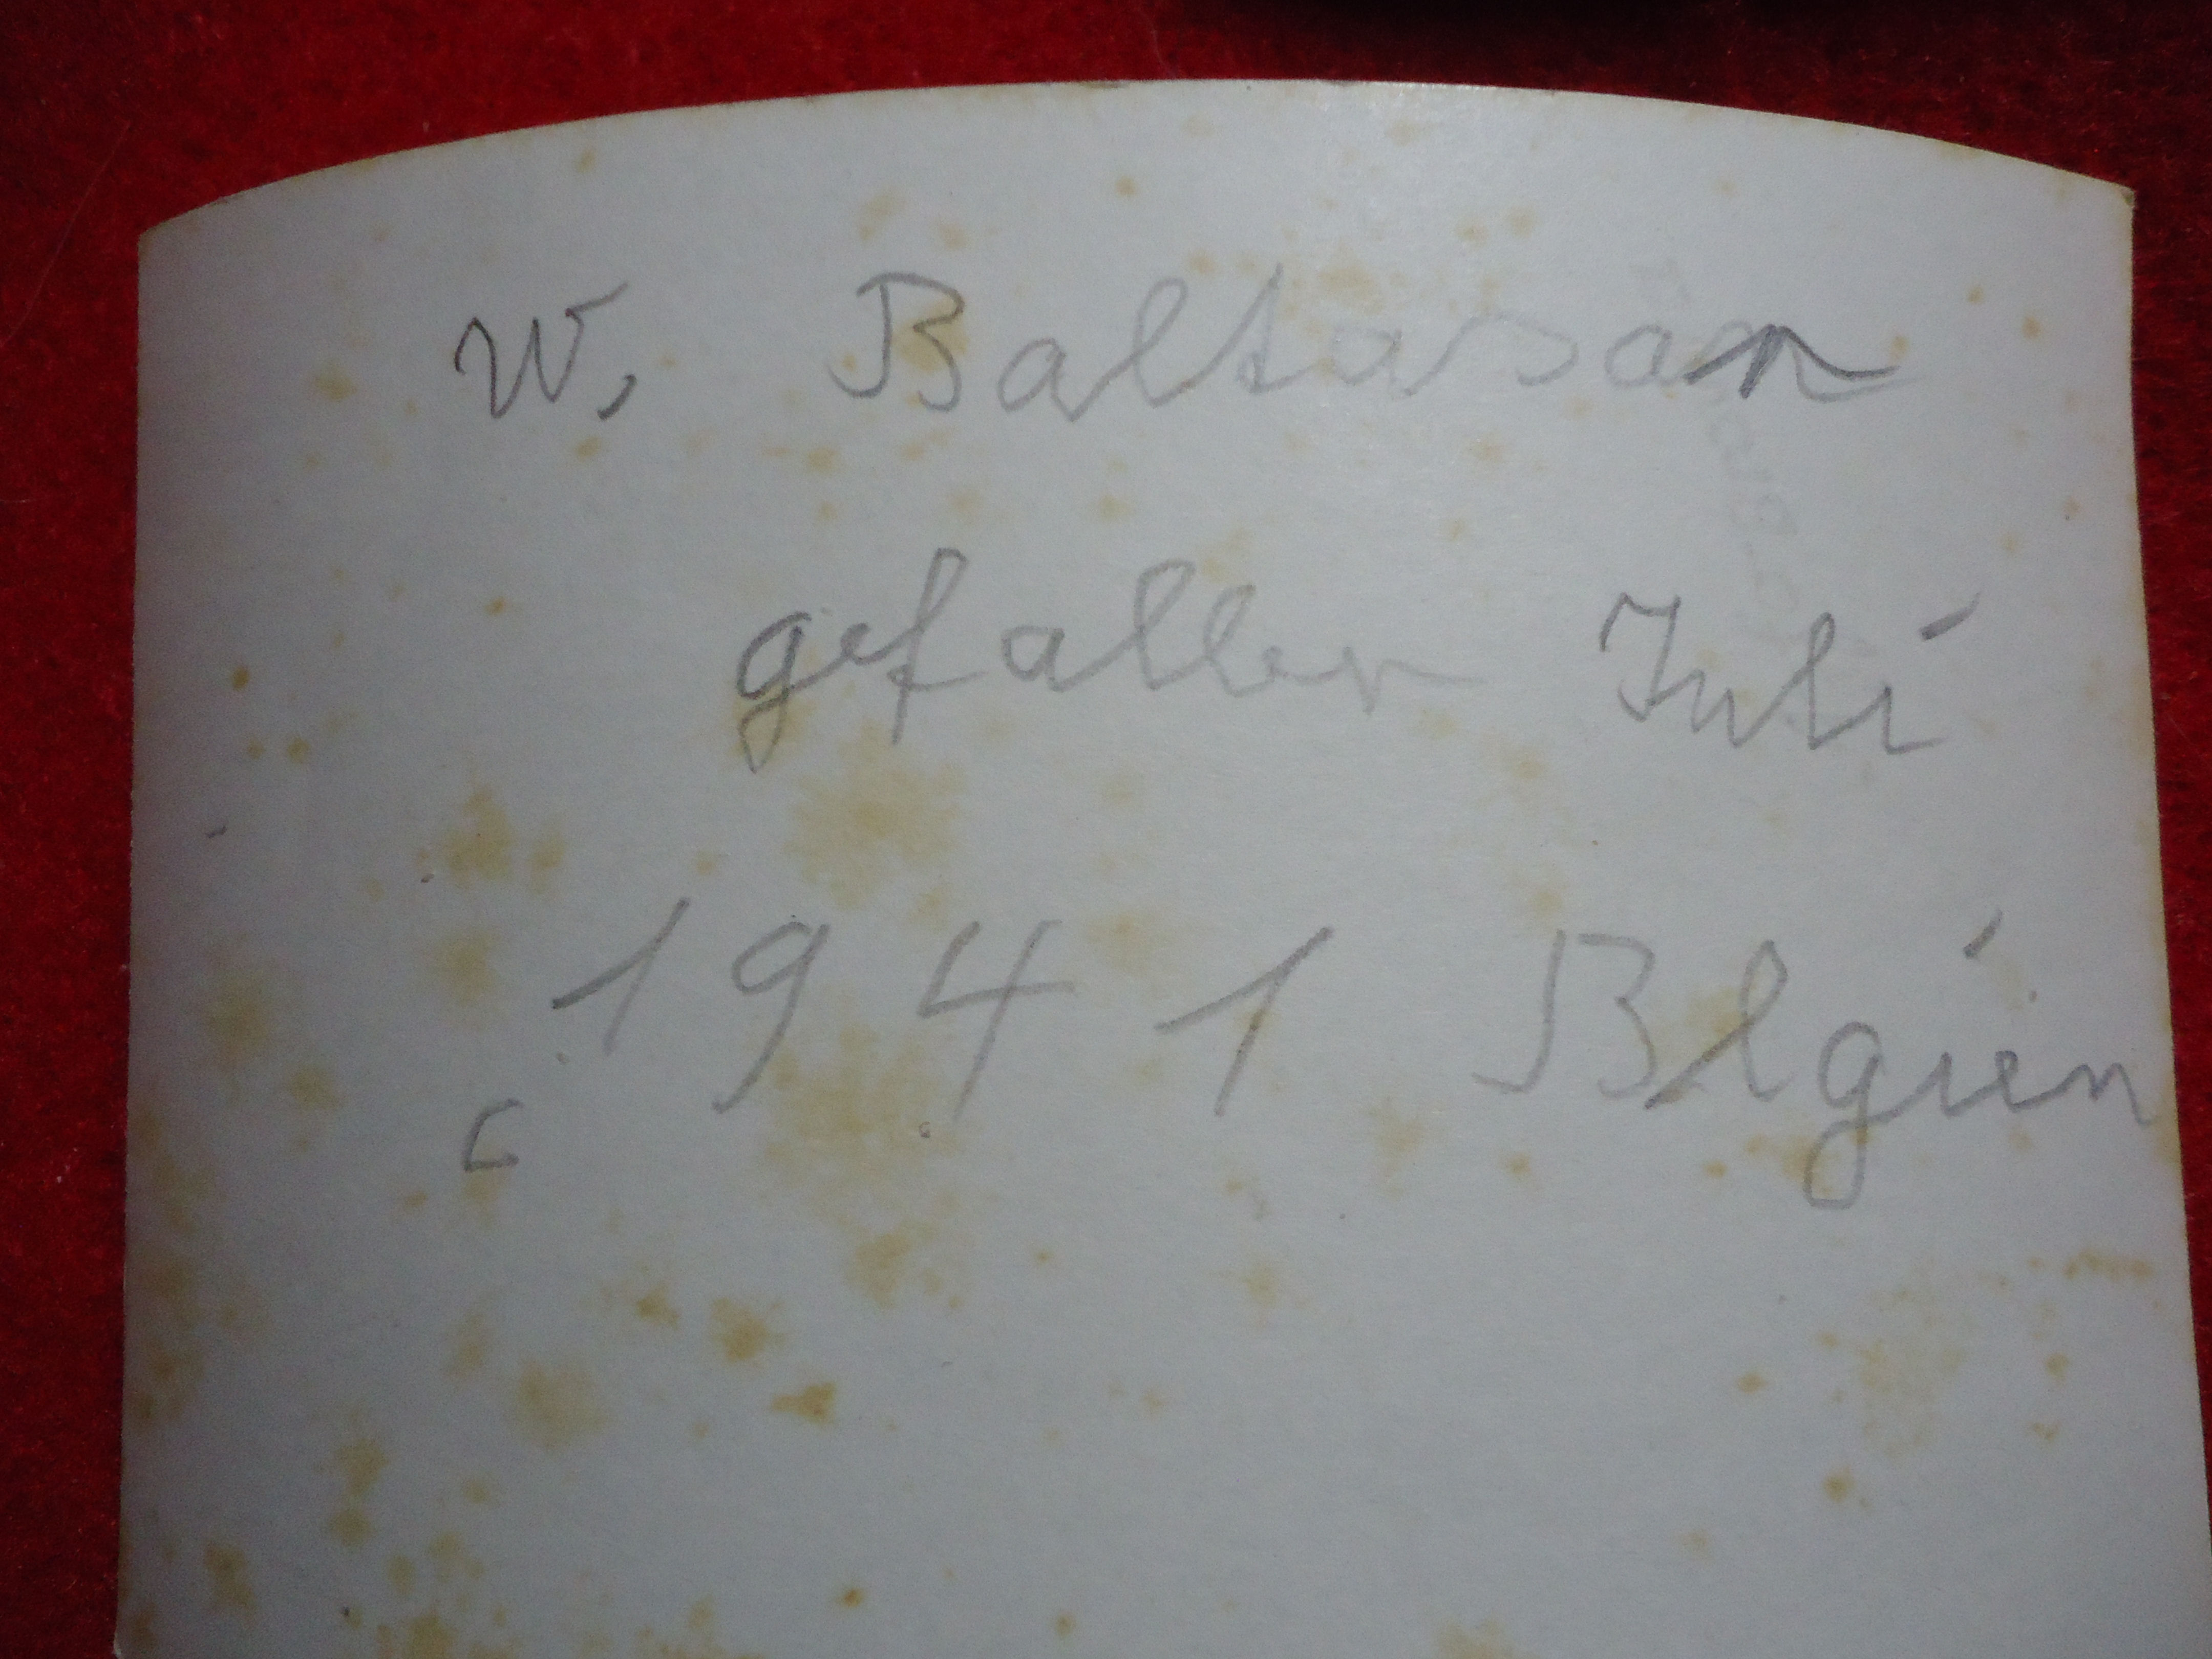 W. Baltasar
gefallen Juli
1941 Blgien